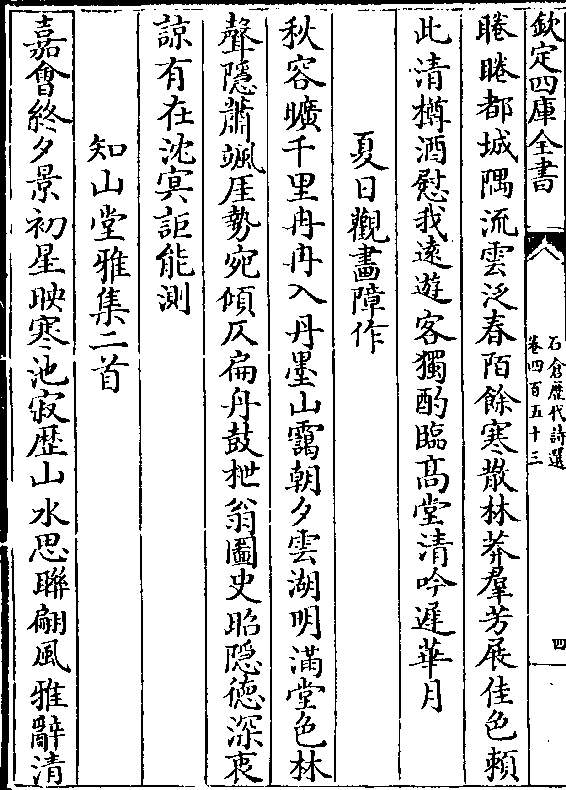 欽定四庫全書
石倉歷代詩選
卷四百五十三
四
睠睠都城隅流雲泛春陌餘寒散林莽羣芳展佳色賴
此清樽酒慰我遠遊客獨酌臨高堂清吟遲華月
夏日觀畫障作
秋容曠千里冉冉入丹墨山靄朝夕雲湖明滿堂色林
聲隱蕭颯厓勢宛傾仄扁舟鼓枻翁圖史昭隱德深衷
諒有在沈冥詎能測
知山堂雅集二首
嘉會終夕景初星映寒池寂歷山水思聯翩風雅辭清